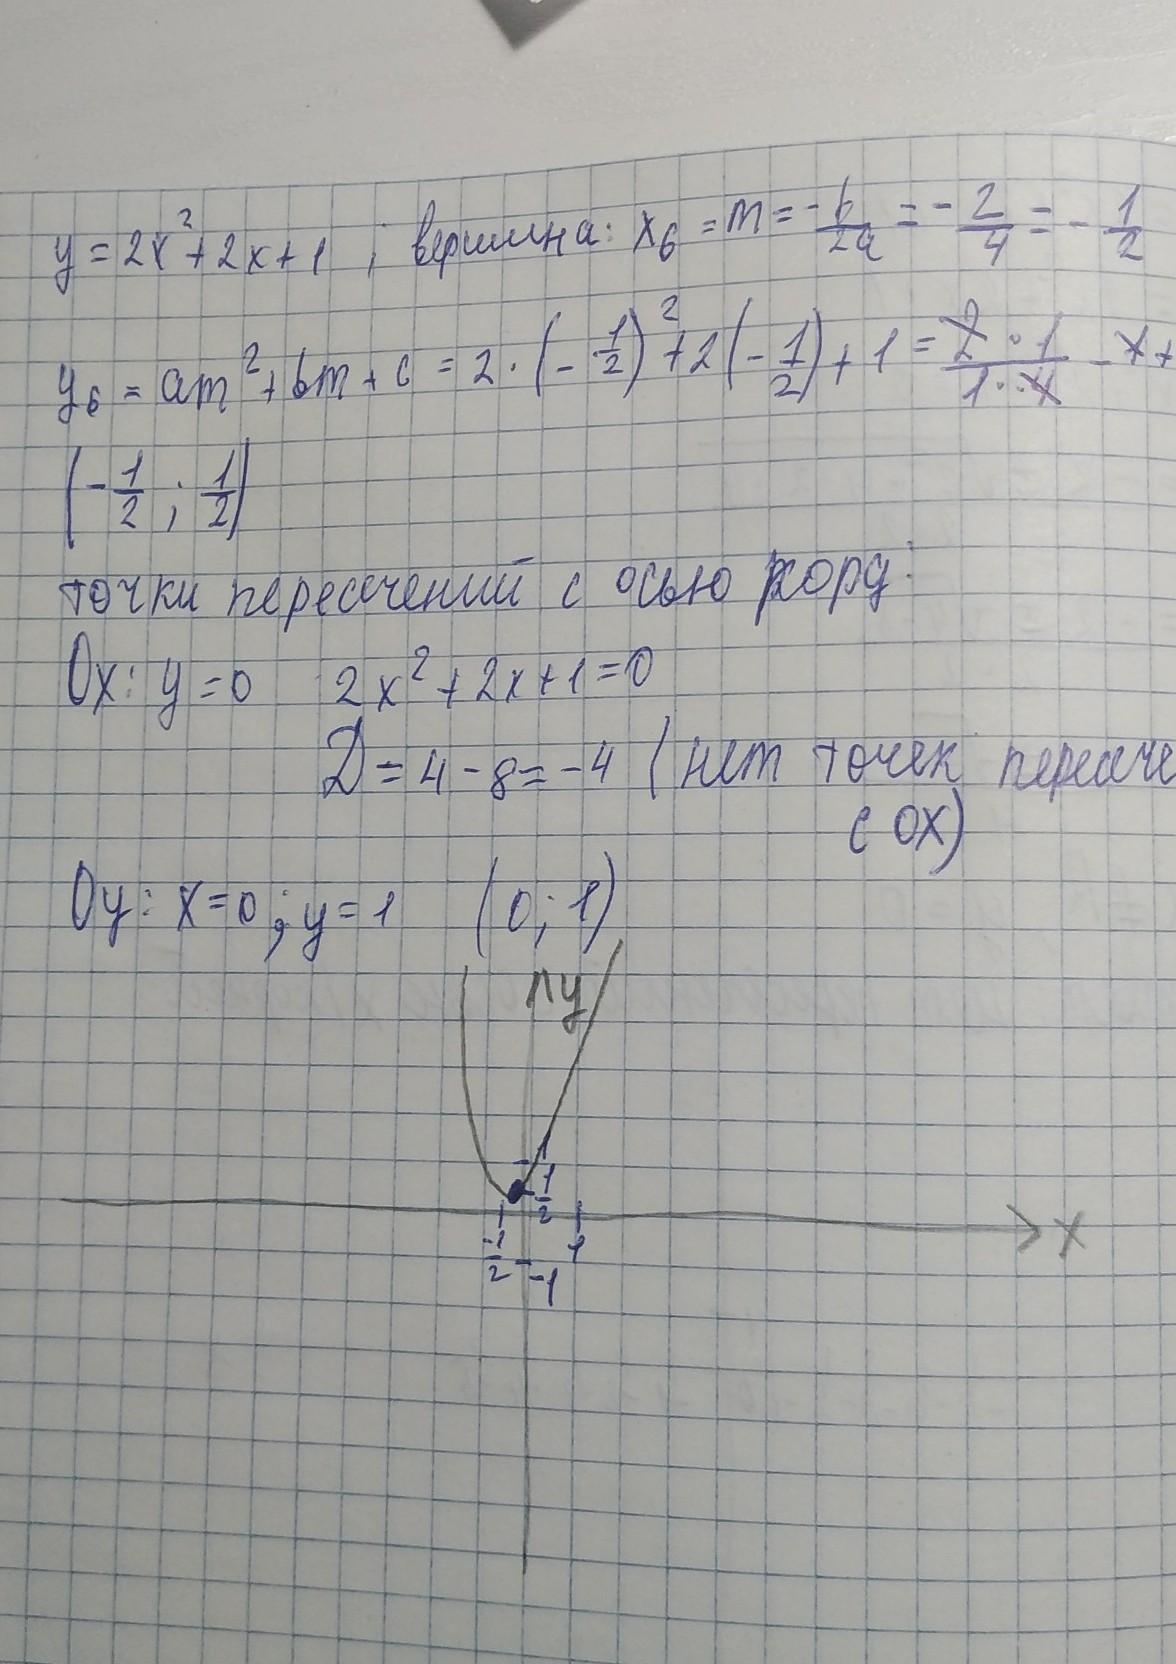 y = 2x² + 2x + 1 ; вершина: xв = m = -b/2a = -2/4 = -1/2
yв = am² + bm + c = 2·(-1/2)² + 2(-1/2) + 1 = 2·1/1·4 - 1 +
(-1/2 ; 1/2)
точки пересечений с осью корд:
Ox: y = 0 2x² + 2x + 1 = 0
D = 4 - 8 = -4 (нет точек пересече
с OX)
Oy: x = 0 ; y = 1 (0 ; 1)
y
1
1/2
-1/2
1
-1
x